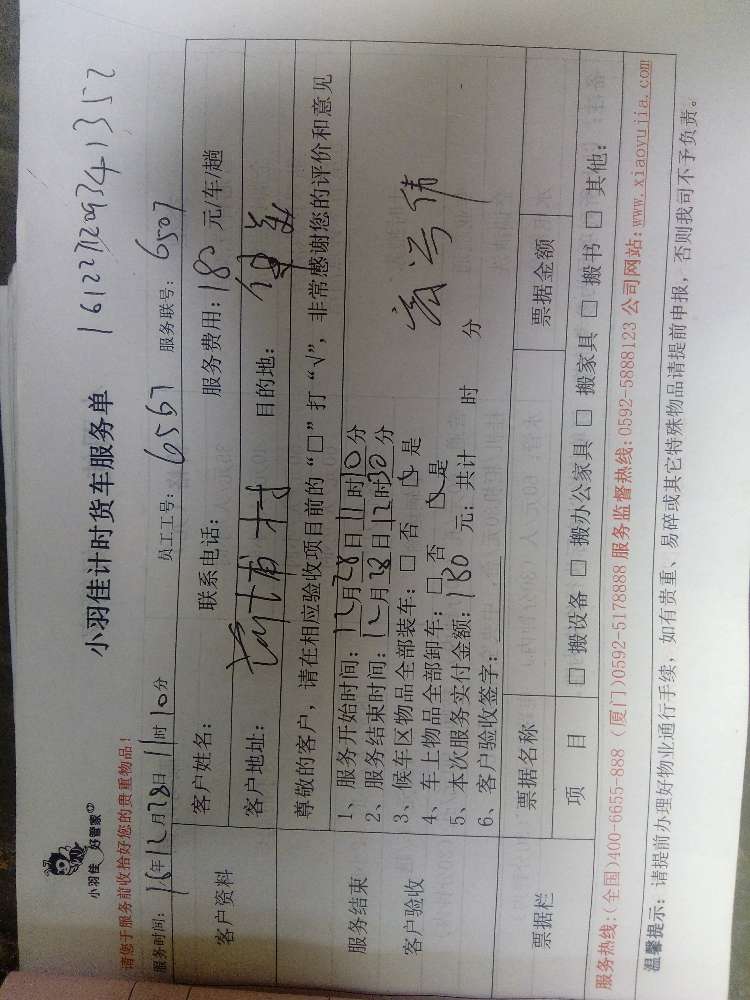 小羽佳 好管家
小羽佳计时货车服务单
请您于服务前收拾好您的贵重物品!
服务时间: 16年12月28日11时10分 员工工号: 6567 服务联号: 6507
客户资料
客户姓名: 联系电话: 服务费用: 180 元/车/趟
客户地址: 目的地:
尊敬的客户，请在相应验收项目前的“□”打“√”，非常感谢您的评价和意见
服务结束
客户验收
1、服务开始时间: 12月28日11时10分
2、服务结束时间: 12月28日12时30分
3、候车区物品全部装车: □ 否 □ 是
4、车上物品全部卸车: □ 否 □ 是
5、本次服务实付金额: 180 元; 共计 时 分
6、客户验收签字:
票据栏
票据名称 票据金额
项 目 □ 搬设备 □ 搬办公家具 □ 搬家具 □ 搬书 □ 其他:
服务热线:(全国)400-6655-888 (厦门)0592-5178888 服务监督热线:0592-5888123 公司网站:www.xiaoyujia.com
温馨提示: 请提前办理好物业通行手续，如有贵重、易碎或其它特殊物品请提前申报，否则我司不予负责。